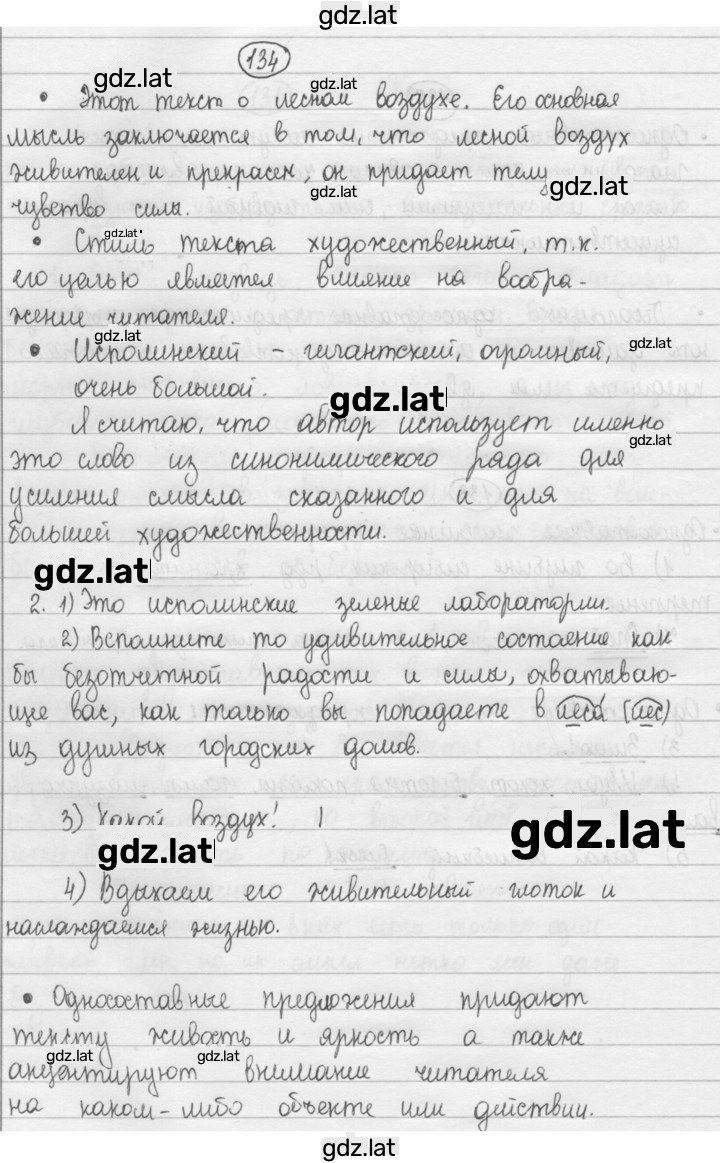 gdz.lat
134
gdz.lat
gdz.lat
• Этот текст о лесном воздухе. Его основная
мысль заключается в том, что лесной воздух
живителен и прекрасен, он придает телу
gdz.lat
gdz.lat
чувство силы.
gdz.lat
• Стиль текста художественный, т.к.
его целью является влияние на вообра-
жение читателя.
gdz.lat
• Исполинский – гигантский, огромный,
gdz.lat
очень большой.
gdz.lat
Я считаю, что автор использует именно
gdz.lat
это слово из синонимического ряда для
усиления смысла сказанного и для
большей художественности.
gdz.lat
2. 1) Это исполинские зеленые лаборатории.
2) Вспомните то удивительное состояние как
бы безотчетной радости и силы, охватываю-
щее вас, как только вы попадаете в леса (лес)
из душных городских домов.
3) Какой воздух!
gdz.lat
gdz.lat
4) Вдыхаем его живительный глоток и
наслаждаемся жизнью.
• Односоставные предложения придают
тексту живость и яркость а также
gdz.lat
gdz.lat
акцентируют внимание читателя
на каком-либо объекте или действии.
gdz.lat